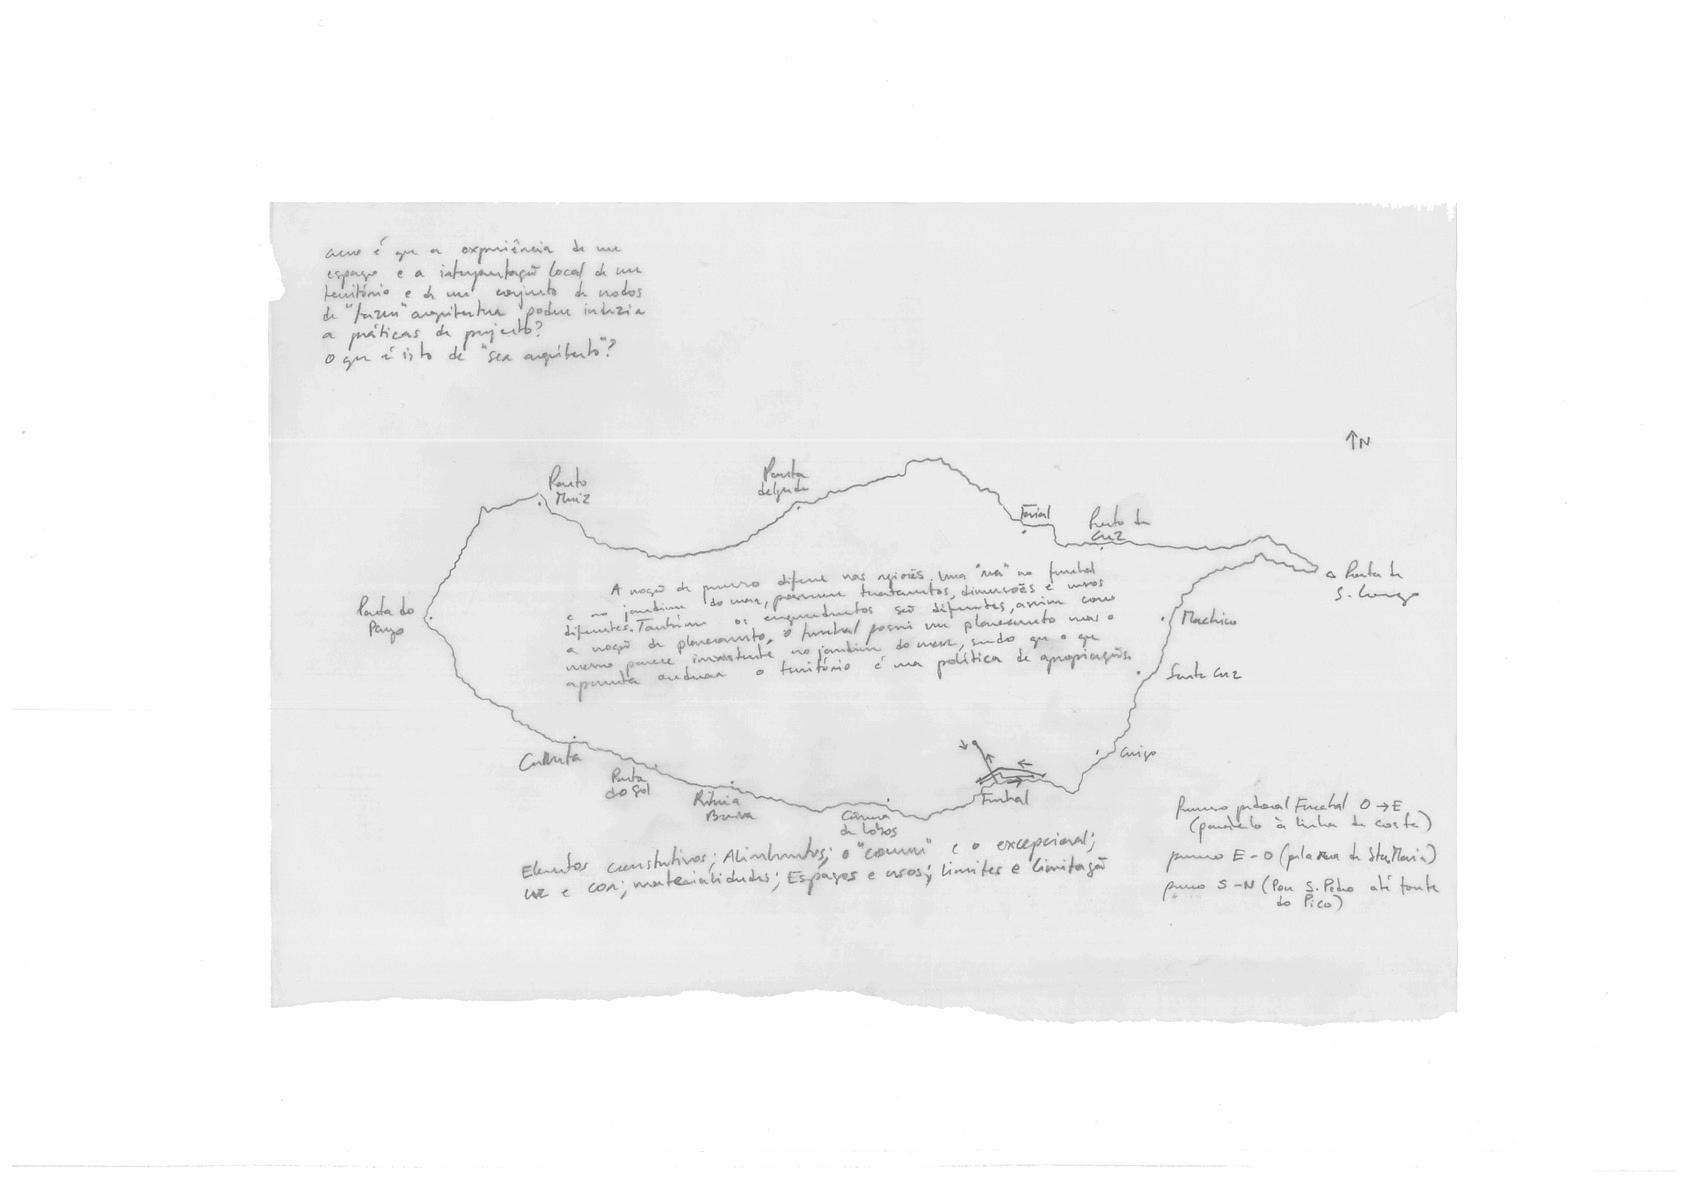 como é que a experiência de um
espaço e a interpretação local de um
território e de um conjunto de modos
de "fazer" arquitectura podem induzir
a práticas de projecto?
O que é isto de "ser arquitecto"?
↑N
Porto
Muiz
Ponta
delgada
Faial
Porto da
Cruz
Ponta de
S. Lourenço
Ponta do
Pargo
A noção de percurso difere nas regiões. Uma "rua" no funchal
e no jardim do mar, possuem tratamentos, dimensões e usos
diferentes. Também os enquadramentos são diferentes, assim como
a noção de planeamento, o funchal possui um planeamento mas o
mesmo parece inexistente no jardim do mar, sendo que o que
aparenta ordenar o território é uma política de apropriação.
Machico
Santa Cruz
Caniço
Calheta
Ponta
do Sol
Ribeira
Brava
Câmara
de Lobos
Funchal
Elementos construtivos; Alinhamentos; o "comum" e o excepcional;
luz e cor; materialidades; Espaços e usos; limites e limitação
Percurso pedonal Funchal O → E
(paralelo à linha de costa)
percurso E - O (pela rua de Sta. Maria)
percurso S - N (Por S. Pedro até fonte
do Pico)